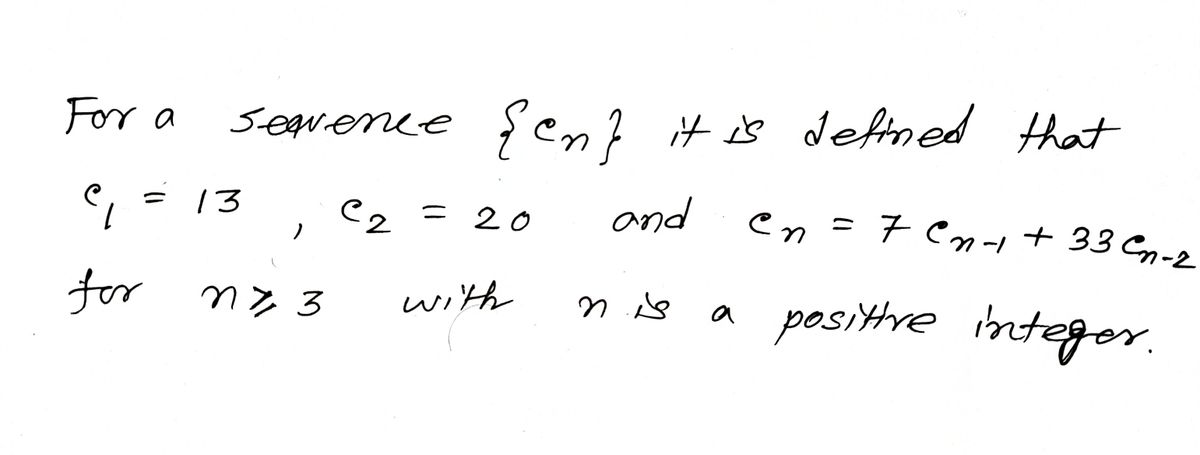 For a sequence {cn} it is defined that
c1 = 13 , c2 = 20 and cn = 7 cn-1 + 33 cn-2
for n ≥ 3 with n is a positive integer.